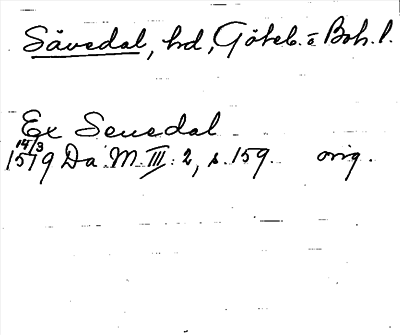 Sävedal, hd, Göteb. o Boh. l.
Ex Seuedal
14/3
1519 Da M III: 2, s. 159. orig.